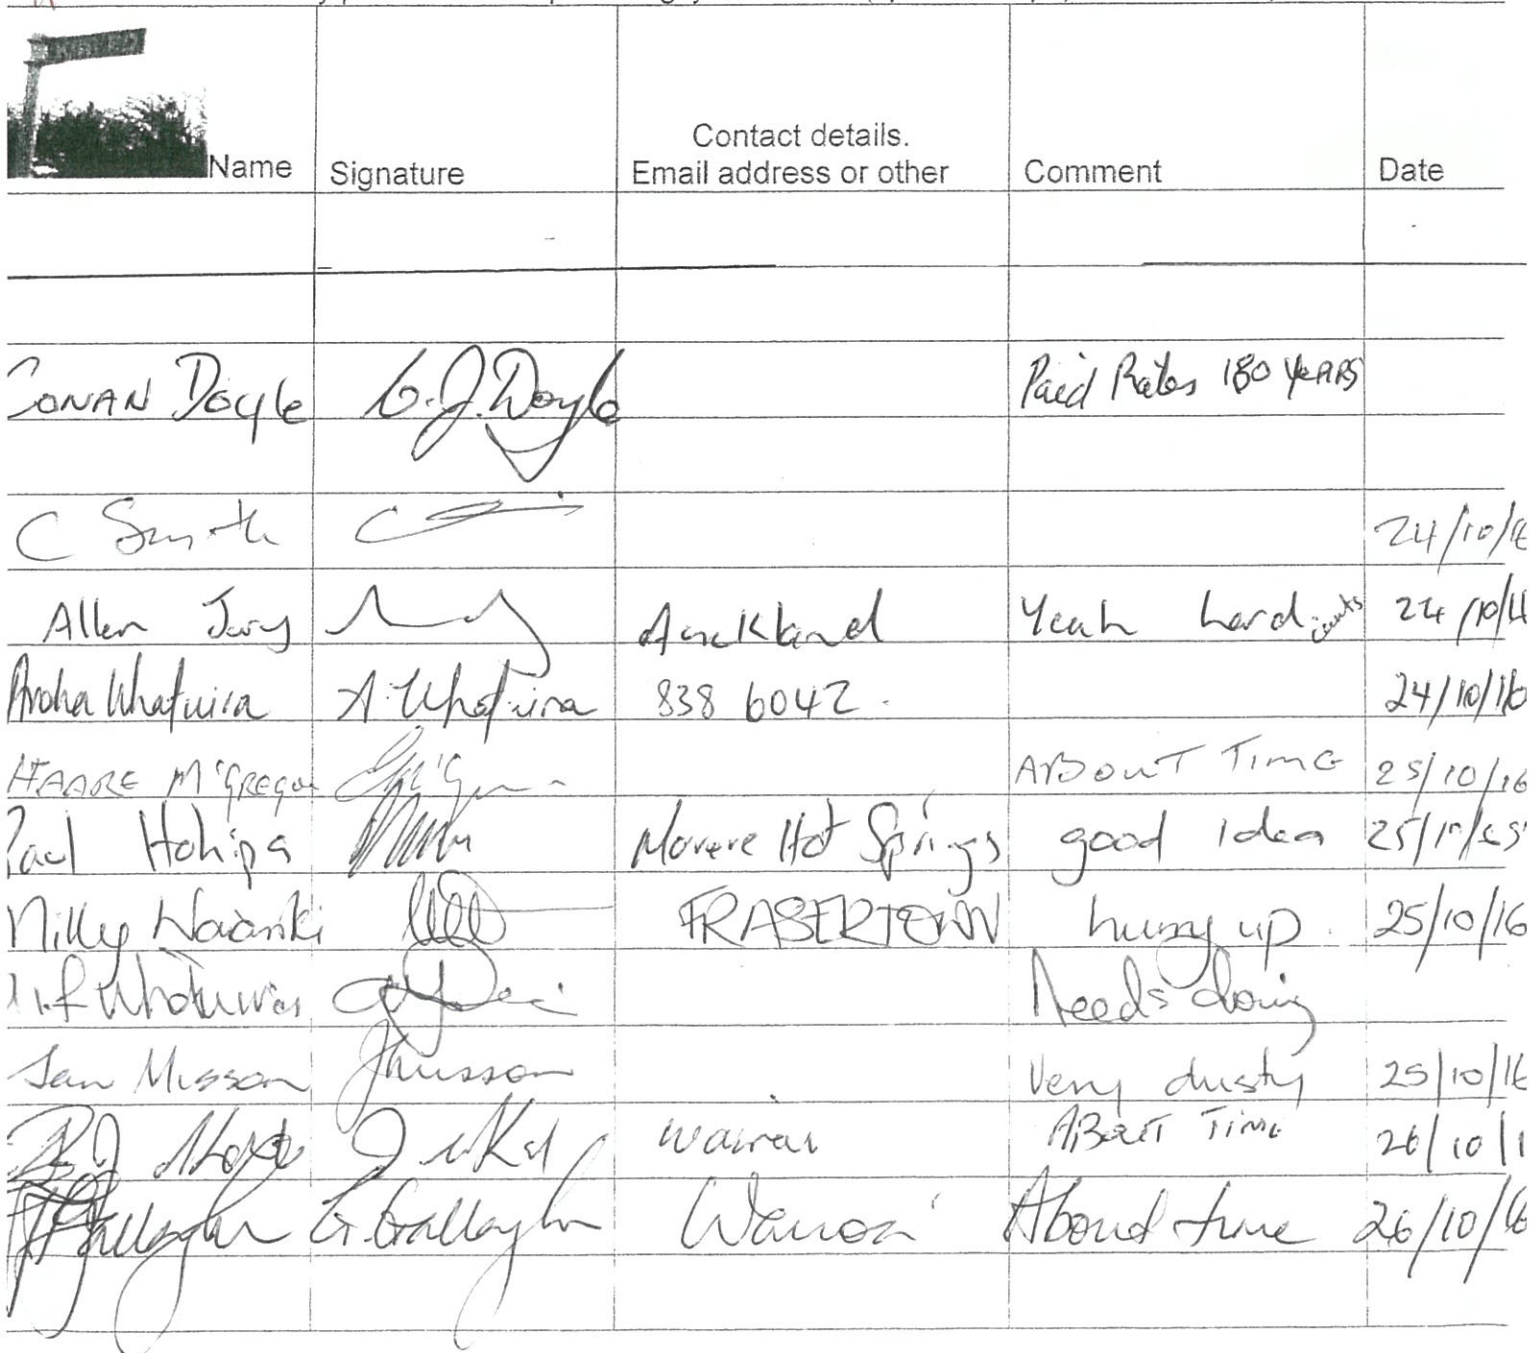 Contact details.
Name Signature Email address or other Comment Date
CONAN Doyle C.J. Doyle Paid Rates 180 YEARS
C Smith 24/10/16
Allen Auckland Yeah hard 24/10/16
Aroha Whatuira A. Whatuira 838 6042. 24/10/16
HAARE M'GREGOR ABOUT TIME 25/10/16
Paul Hohipa Morere Hot Springs good idea
Milly FRASERTOWN hurry up. 25/10/16
Needs doing
Jan Musson JMusson Very dusty 25/10/16
wairoa ABOUT TIME 26/10/1
Gallagher G. Gallagher Wairoa About time 26/10/16